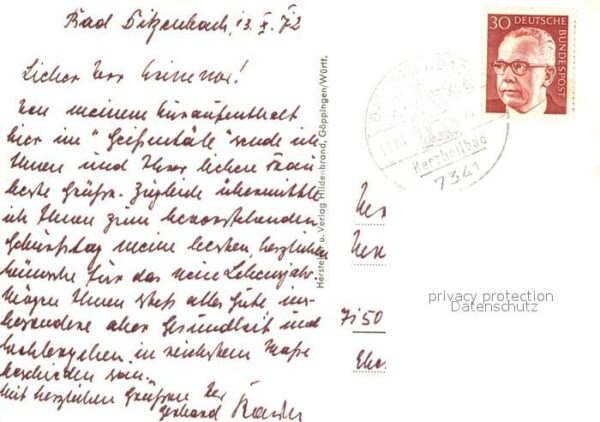 Bad Ditzenbach, 13.X.72
Lieber Herr
Von meinem Kuraufenthalt
hier im "Geißentäle" sende ich
Ihnen und Ihrer lieben Frau
beste Grüße. Zugleich übermittle
ich Ihnen zum bevorstehenden
Geburtstag meine besten herzlichen
Wünsche für das neue Lebensjahr
Mögen Ihnen stets alles Gute ins-
besondere aber Gesundheit und
Wohlergehen in reichstem Maße
beschieden sein.
Mit herzlichen Grüßen Ihr
Gerhard
Hersteller u. Verlag Hildenbrand, Göppingen/Württ.
30 DEUTSCHE
BUNDESPOST
Herzheilbad
7341
Herr
7150
privacy protection
Datenschutz